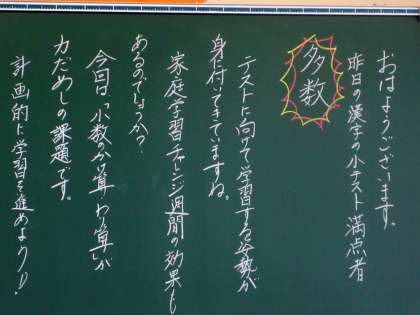 おはようございます。
昨日の漢字の小テスト満点者
多数
テストに向けて学習する姿勢が
身に付いてきていますね。
家庭学習チャレンジ週間の効果も
あるのでしょうか?
今回は「小数のかけ算・わり算」が
力だめしの課題です。
計画的に学習を進めよう♪!